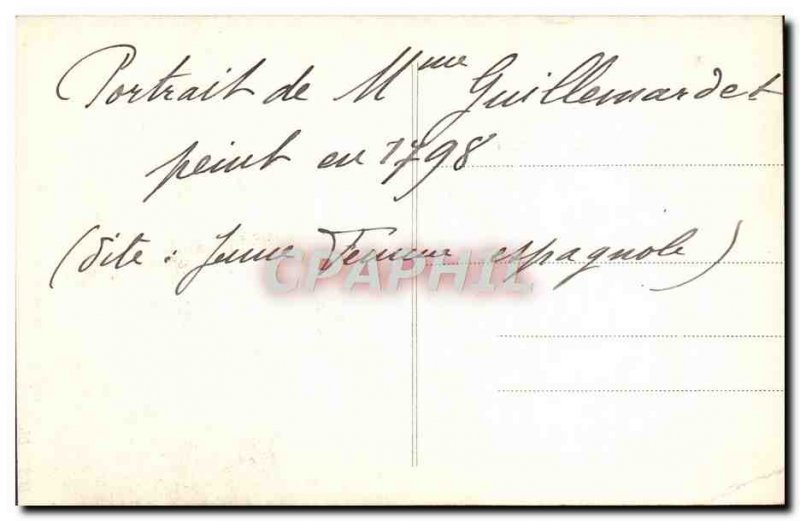 Portrait de Mme Guillemardet
peint en 1798
(dite : Jeune Femme espagnole)
CPAPHIL